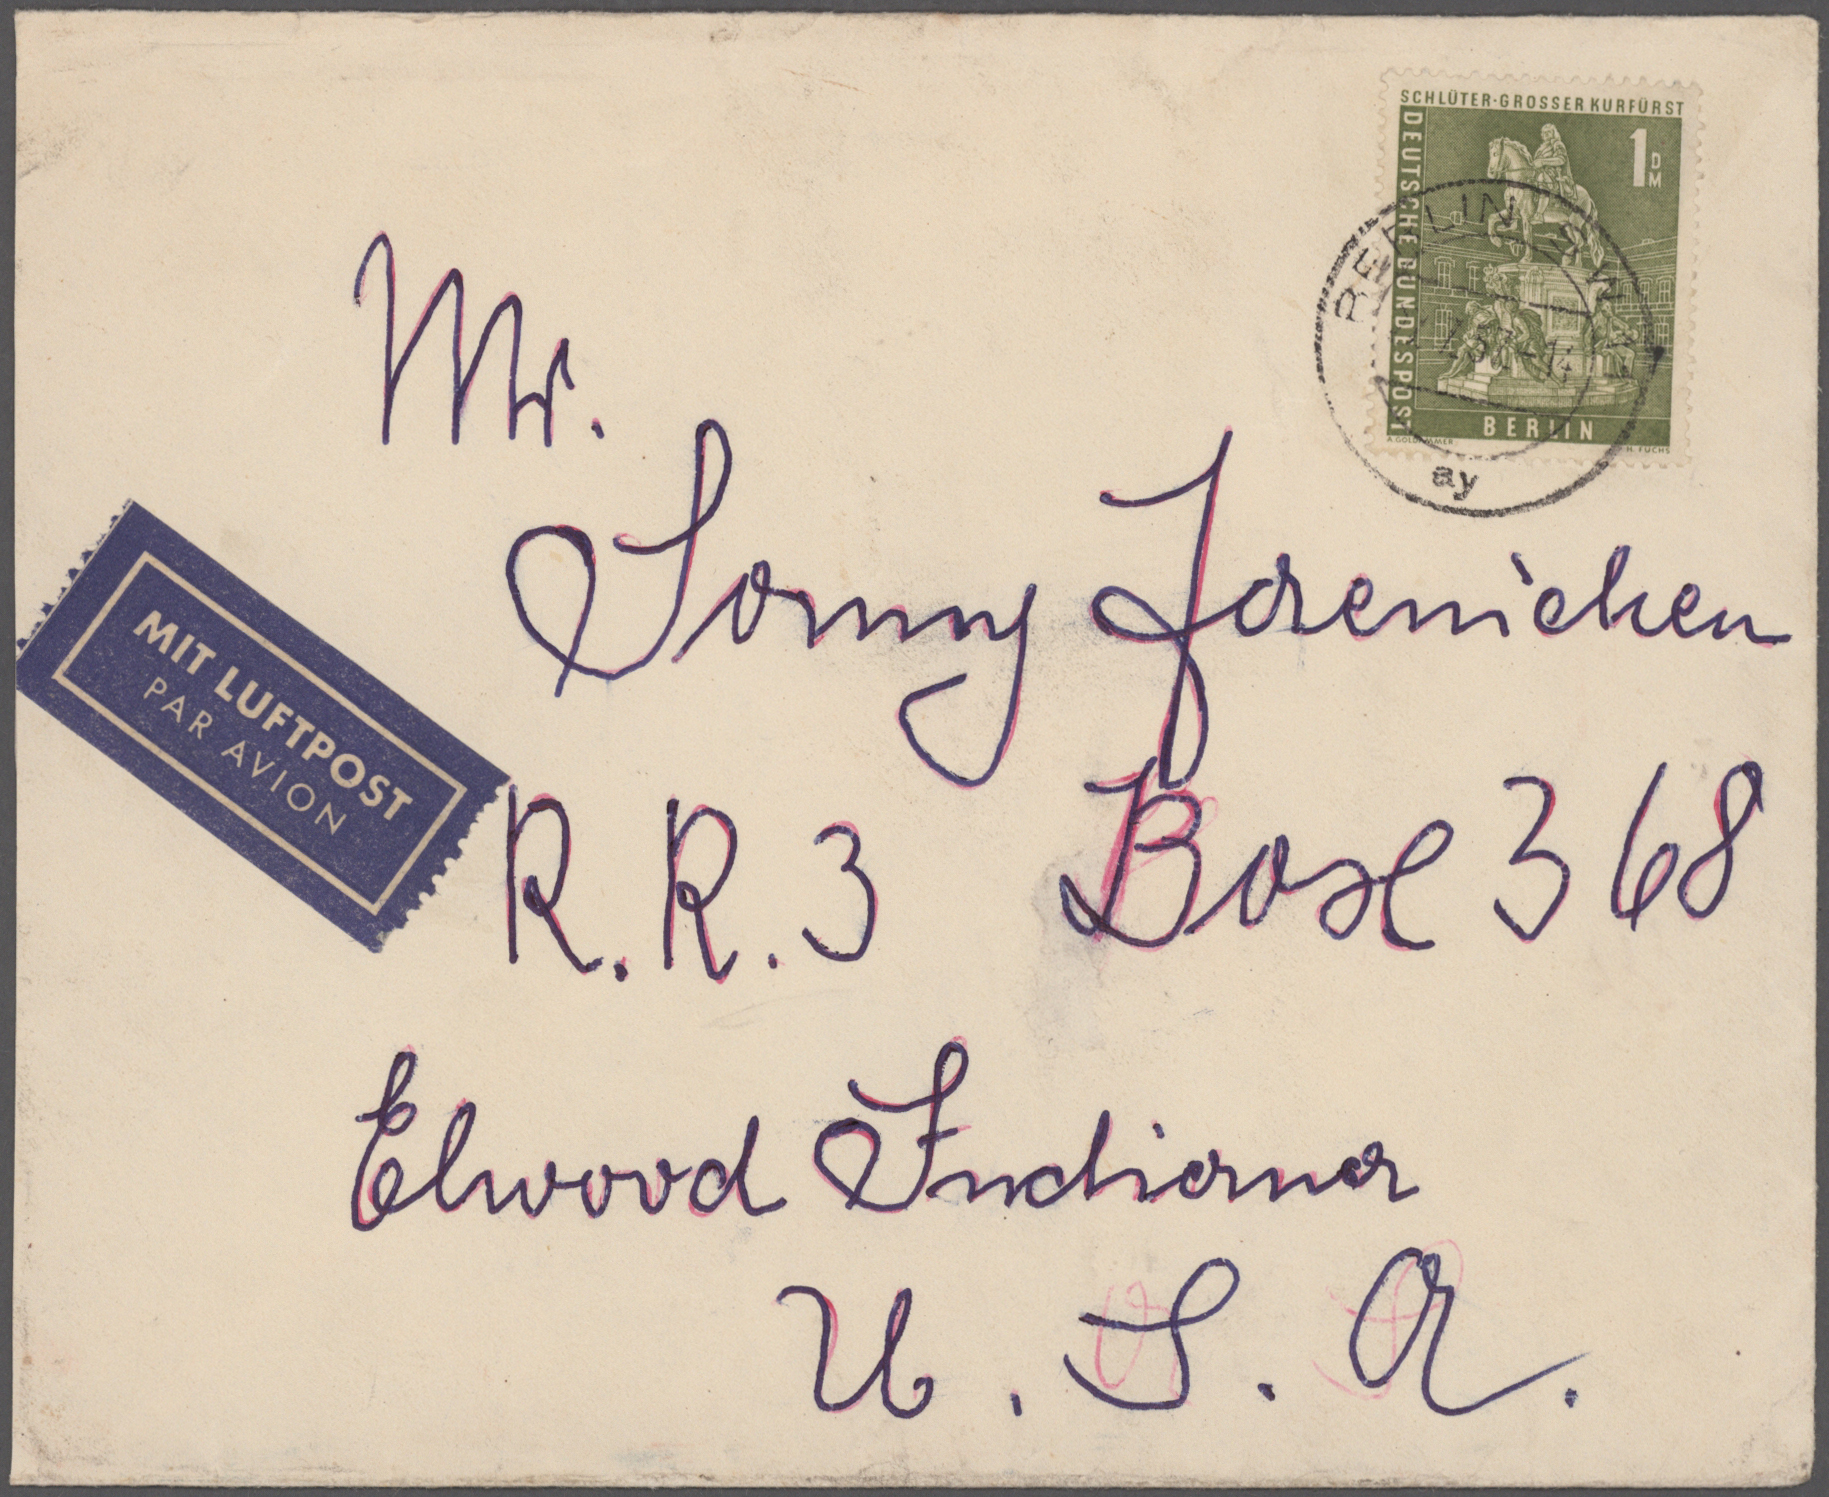 SCHLÜTER·GROSSER KURFÜRST
DEUTSCHE BUNDESPOST
1 DM
BERLIN
H. FUCHS
BERLIN SW
ay
Mr.
Sonny Jaenichen
MIT LUFTPOST
PAR AVION
R. R. 3 Box 368
Elwood Indiana
U. S. A.